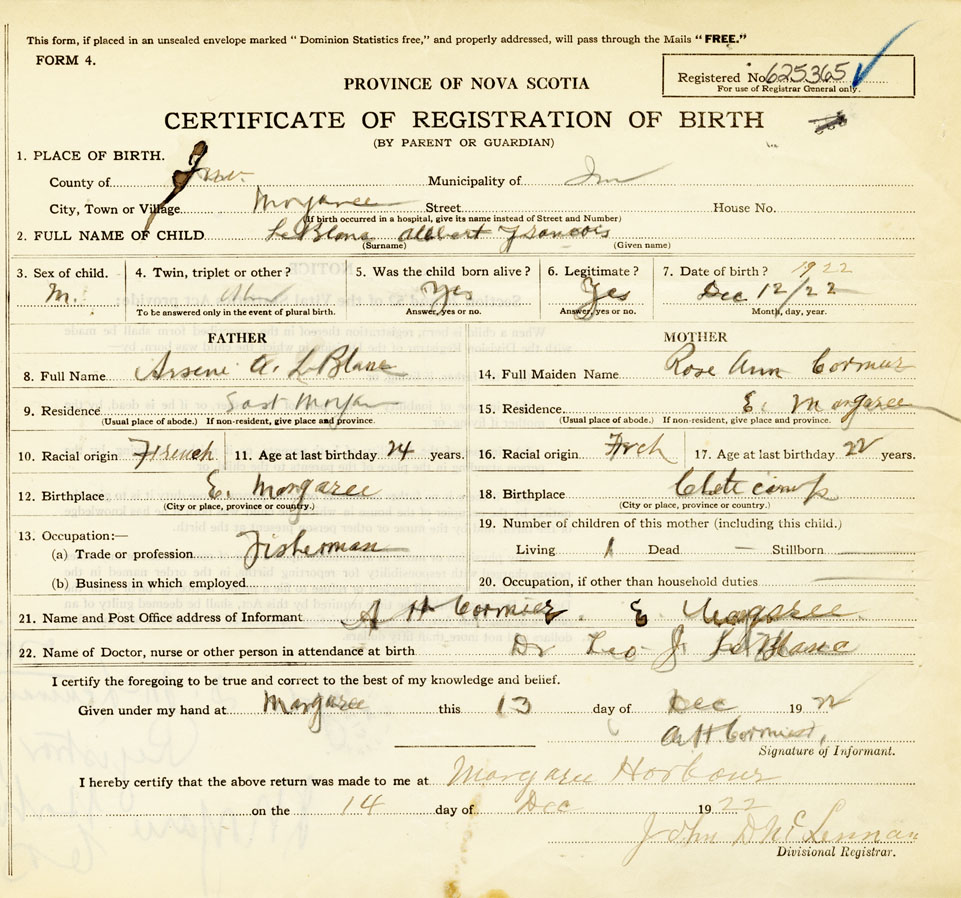 This form, if placed in an unsealed envelope marked "Dominion Statistics free," and properly addressed, will pass through the Mails "FREE."
FORM 4.
Registered No. 625365
For use of Registrar General only.
PROVINCE OF NOVA SCOTIA
CERTIFICATE OF REGISTRATION OF BIRTH
(BY PARENT OR GUARDIAN)
1. PLACE OF BIRTH.
County of Inv. Municipality of Inv
City, Town or Village Margaree Street House No.
(If birth occurred in a hospital, give its name instead of Street and Number)
2. FULL NAME OF CHILD LeBlanc Albert Francois
(Surname) (Given name)
3. Sex of child. 4. Twin, triplet or other? 5. Was the child born alive? 6. Legitimate? 7. Date of birth? 1922
M. Yes Yes Dec 12/22
To be answered only in the event of plural birth. Answer, yes or no. Answer, yes or no. Month, day, year.
FATHER MOTHER
8. Full Name Arsene A. LeBlanc 14. Full Maiden Name Rose Ann Cormier
9. Residence East Margaree 15. Residence E. Margaree
(Usual place of abode.) If non-resident, give place and province. (Usual place of abode.) If non-resident, give place and province.
10. Racial origin French 11. Age at last birthday 24 years. 16. Racial origin Frch 17. Age at last birthday 22 years.
12. Birthplace E. Margaree 18. Birthplace Cheticamp
(City or place, province or country.) (City or place, province or country.)
13. Occupation:— 19. Number of children of this mother (including this child.)
(a) Trade or profession Fisherman Living 1 Dead — Stillborn
(b) Business in which employed 20. Occupation, if other than household duties
21. Name and Post Office address of Informant A H Cormier. E. Margaree.
22. Name of Doctor, nurse or other person in attendance at birth Dr Leo J. LeBlanc
I certify the foregoing to be true and correct to the best of my knowledge and belief.
Given under my hand at Margaree this 13 day of Dec 1922
A H Cormier,
Signature of Informant.
I hereby certify that the above return was made to me at Margaree Harbour
on the 14 day of Dec 1922
John D McLennan
Divisional Registrar.